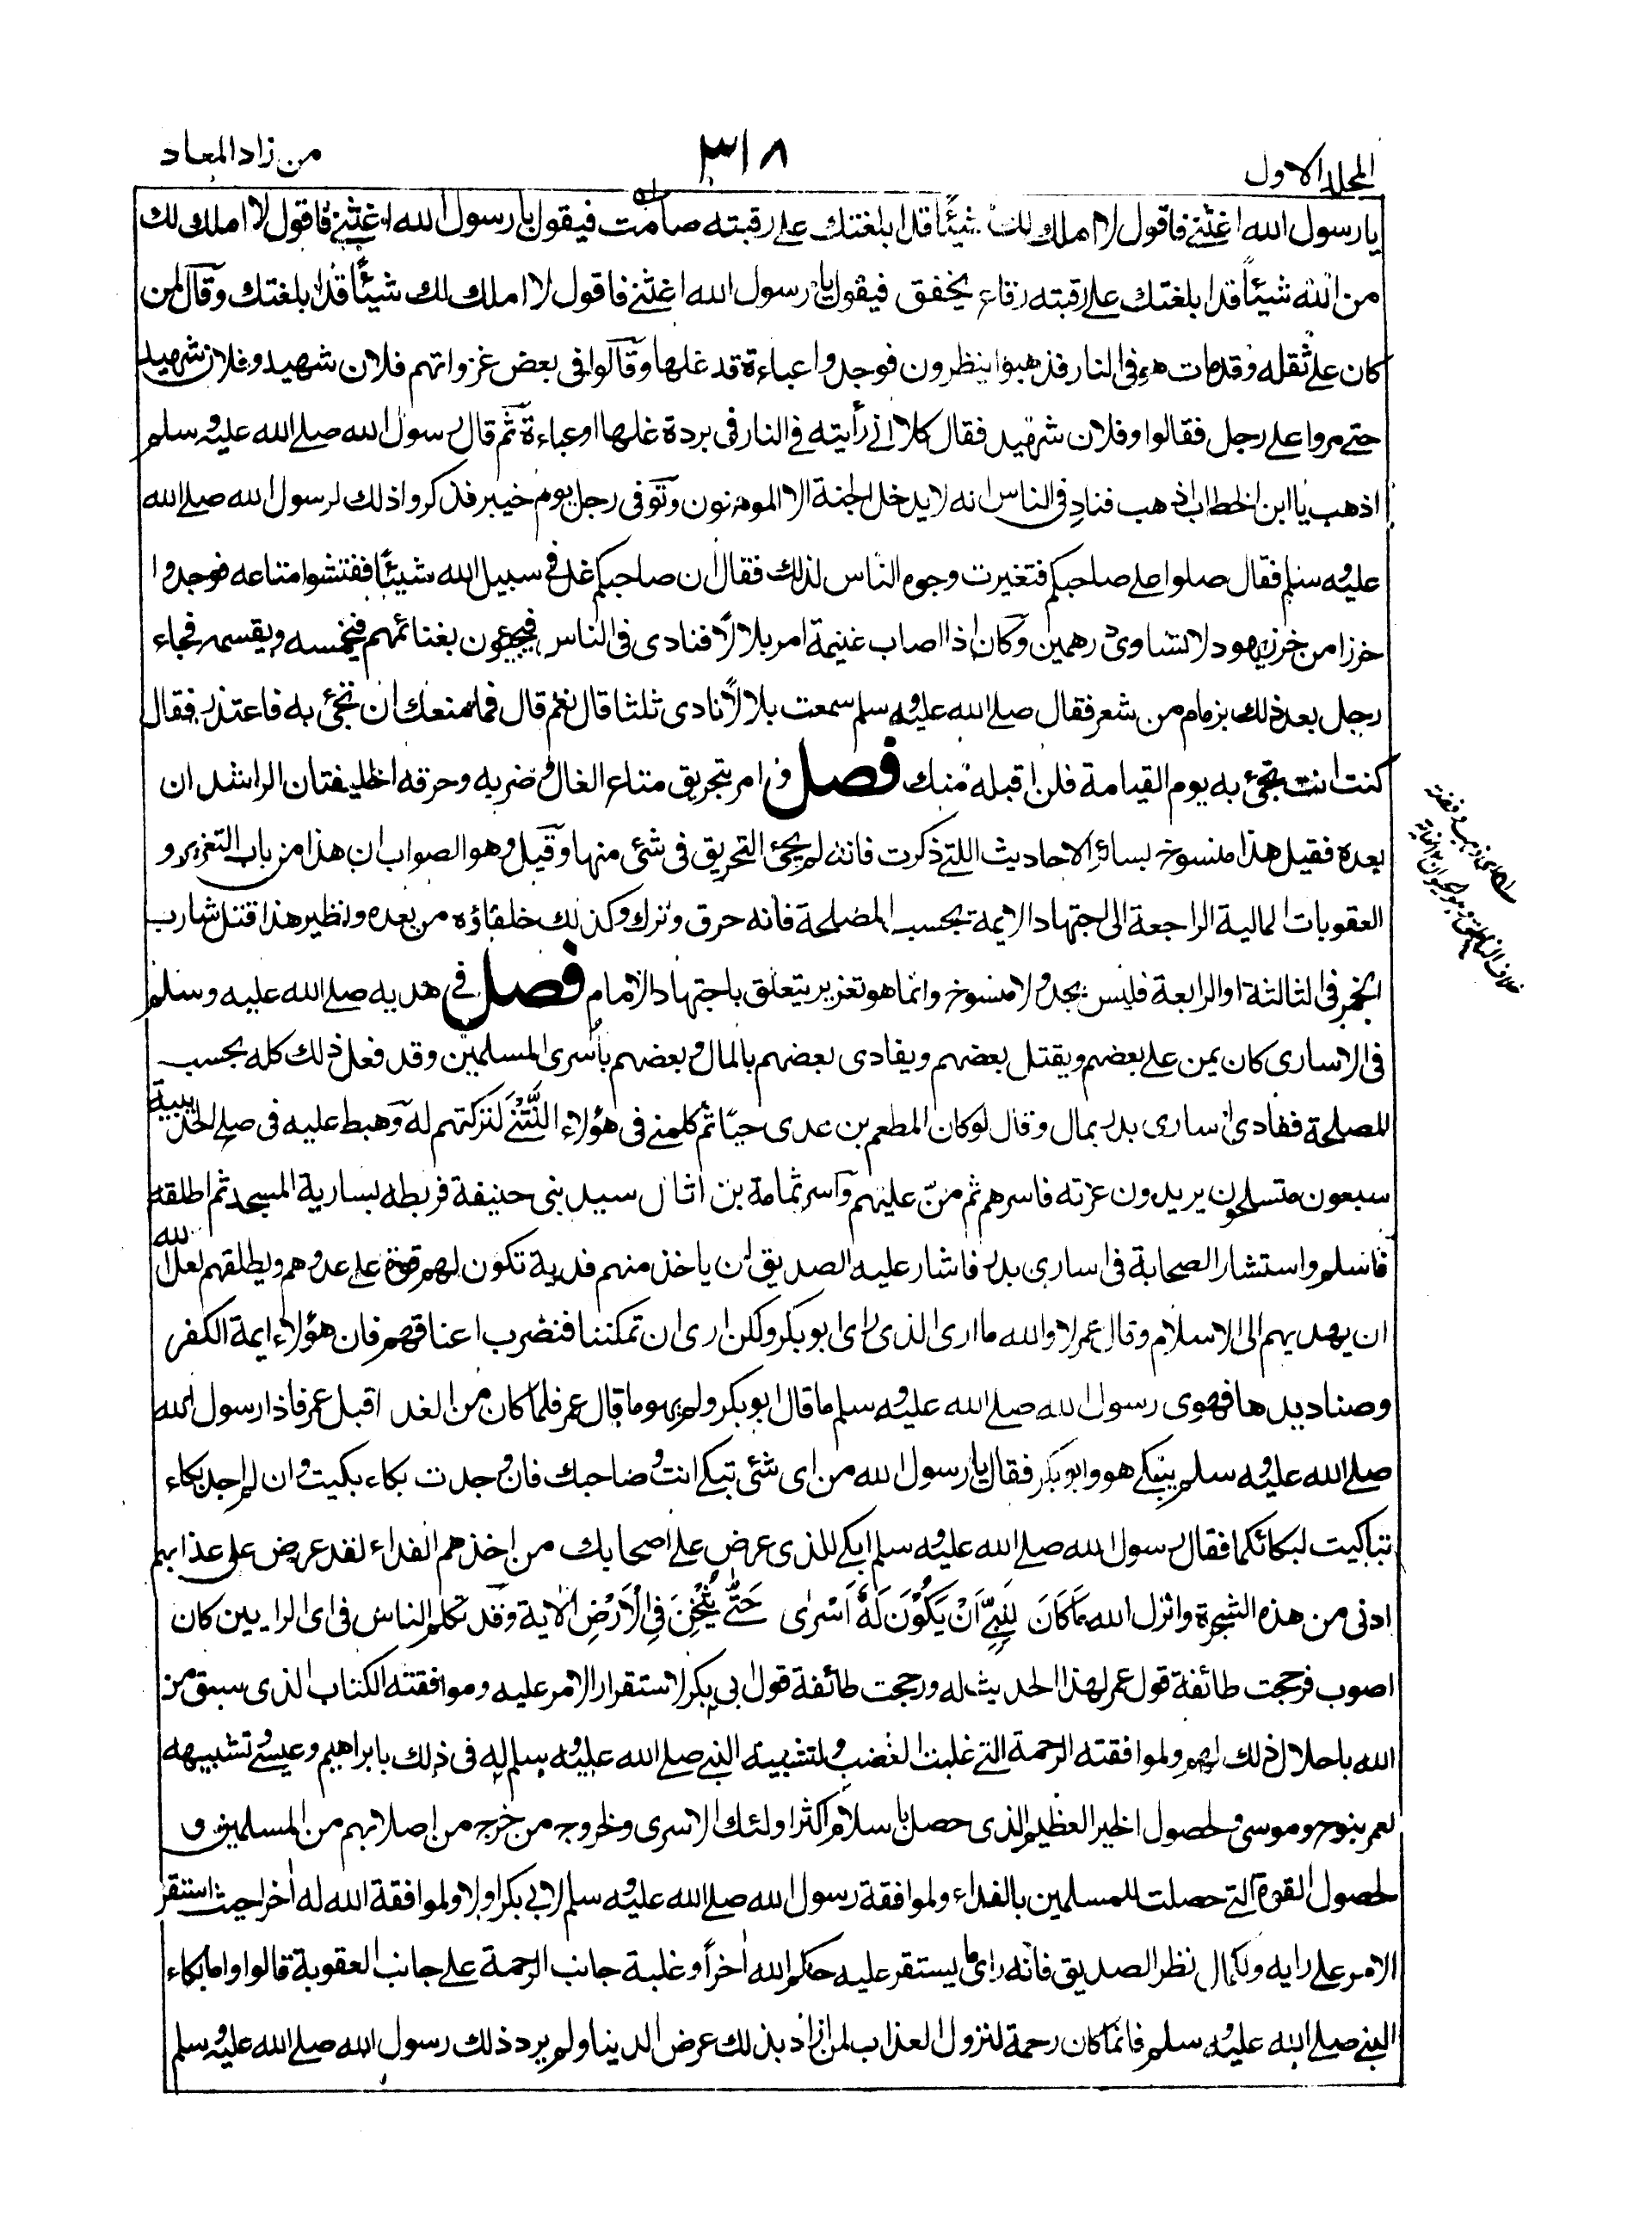 المجلد الاول
٣١٨
من زاد المعاد
يا رسول الله اغثنى فاقول لا املك لك شيئًا قد ابلغتك على رقبته صامت فيقول يا رسول الله اغثنى فاقول لا املك لك
من الله شيئًا قد ابلغتك على رقبته رقاع يخفق فيقول يا رسول الله اغثنى فاقول لا املك لك شيئًا قد ابلغتك وقال لمن
كان على ثقله وقد مات هو فى النار فذهبوا ينظرون فوجدوا عباءة قد غلها وقالوا فى بعض غزواتهم فلان شهيد وفلان شهيد
حتى مروا على رجل فقالوا وفلان شهيد فقال كلا انى رأيته فى النار فى بردة غلها او عباءة ثم قال رسول الله صلى الله عليه وسلم
اذهب يا ابن الخطاب اذهب فناد فى الناس انه لا يدخل الجنة الا المومنون وتوفى رجل يوم خيبر فذكروا ذلك لرسول الله صلى الله
عليه وسلم فقال صلوا على صاحبكم فتغيرت وجوه الناس لذلك فقال ان صاحبكم غل فى سبيل الله شيئًا ففتشوا متاعه فوجدوا
خرزا من خرز يهود لا تساوى درهمين وكان اذا اصاب غنيمة امر بلالًا فنادى فى الناس فيجيئون بغنائمهم فيخمسه ويقسمه فجاء
رجل بعد ذلك بزمام من شعر فقال صلى الله عليه وسلم سمعت بلالًا نادى ثلثا قال نعم قال فما منعك ان تجئ به فاعتذر فقال
كنت انت تجئ به يوم القيامة فلن اقبله منك فصل وامر بتحريق متاع الغال وضربه وحرقه الخليفتان الراشدان
بعده فقيل هذا منسوخ بسائر الاحاديث اللتى ذكرت فانه لم يجئ التحريق فى شئ منها وقيل وهو الصواب ان هذا من باب التعزير و
العقوبات المالية الراجعة الى اجتهاد الايمة بحسب المصلحة فانه حرق وترك وكذلك خلفاؤه من بعده ونظير هذا قتل شارب
الخمر فى الثالثة او الرابعة فليس بحد ولا منسوخ وانما هو تعزير يتعلق باجتهاد الامام فصل فى هديه صلى الله عليه وسلم
فى الاسارى كان يمن على بعضهم ويقتل بعضهم ويفادى بعضهم بالمال وبعضهم بأسرى المسلمين وقد فعل ذلك كله بحسب
المصلحة ففادى اسارى بدر بمال وقال لو كان المطعم بن عدى حيًا ثم كلمنى فى هؤلاء النَّتْنٰى لتركتهم له وهبط عليه فى صلح الحديبية
سبعون متسلحون يريدون عزته فاسرهم ثم منّ عليهم وآسر ثمامة بن اثال سيد بنى حنيفة فربطه بسارية المسجد ثم اطلقه
فاسلم واستشار الصحابة فى اسارى بدر فاشار عليه الصديق ان ياخذ منهم فدية تكون لهم قوة على عدوهم ويطلقهم لعل الله
ان يهديهم الى الاسلام وقال عمر لا والله ما ارى الذى راى ابو بكر ولكن ارى ان تمكننا فنضرب اعناقهم فان هؤلاء ايمة الكفر
وصناديدها فهوى رسول الله صلى الله عليه وسلم ما قال ابو بكر ولم يهو ما قال عمر فلما كان من الغد اقبل عمر فاذا رسول الله
صلى الله عليه وسلم يبكى هو وابو بكر فقال يا رسول الله من اى شئ تبكى انت وصاحبك فان وجدت بكاء بكيت وان لم اجد بكاء
تباكيت لبكائكما فقال رسول الله صلى الله عليه وسلم ابكى للذى عرض على اصحابك من اخذهم الفداء لقد عرض على عذابهم
ادنى من هذه الشجرة وانزل الله مَا كَانَ لِنَبِيٍّ اَنْ يَكُوْنَ لَهٗ اَسْرٰى حَتّٰى يُثْخِنَ فِى الْاَرْضِ الاية وقد تكلم الناس فى اى الرايين كان
اصوب فرجحت طائفة قول عمر لهذا الحديث له ورجحت طائفة قول ابى بكر لاستقرار الامر عليه وموافقته الكتاب الذى سبق من
الله باحلال ذلك لهم ولموافقته الرحمة التى غلبت الغضب ولتشبيه النبى صلى الله عليه وسلم له فى ذلك بابراهيم وعيسى وتشبيهه
لعمر بنوح وموسى ولحصول الخير العظيم الذى حصل باسلام اكثر اولئك الاسرى ولخروج من خرج من اصلابهم من المسلمين و
لحصول القوة التى حصلت للمسلمين بالفداء ولموافقة رسول الله صلى الله عليه وسلم لابى بكر اولا ولموافقة الله له اخرا حيث استقر
الامر على رايه ولكمال نظر الصديق فانه راى ما يستقر عليه حكم الله اخراً وغلبة جانب الرحمة على جانب العقوبة قالوا واما بكاء
النبى صلى الله عليه وسلم فانما كان رحمة لنزول العذاب لمن اراد بذلك عرض الدينا ولم يرد ذلك رسول الله صلى الله عليه وسلم